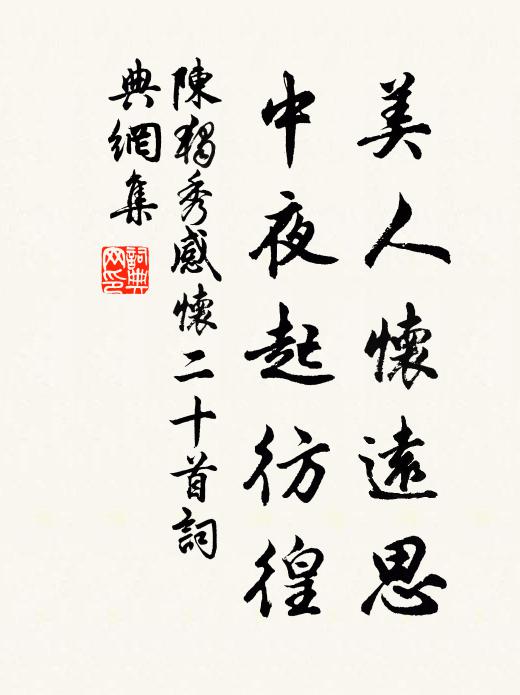 美人懷遠思
中夜起彷徨
陳獨秀感懷二十首詞
典網集
詞典
网印